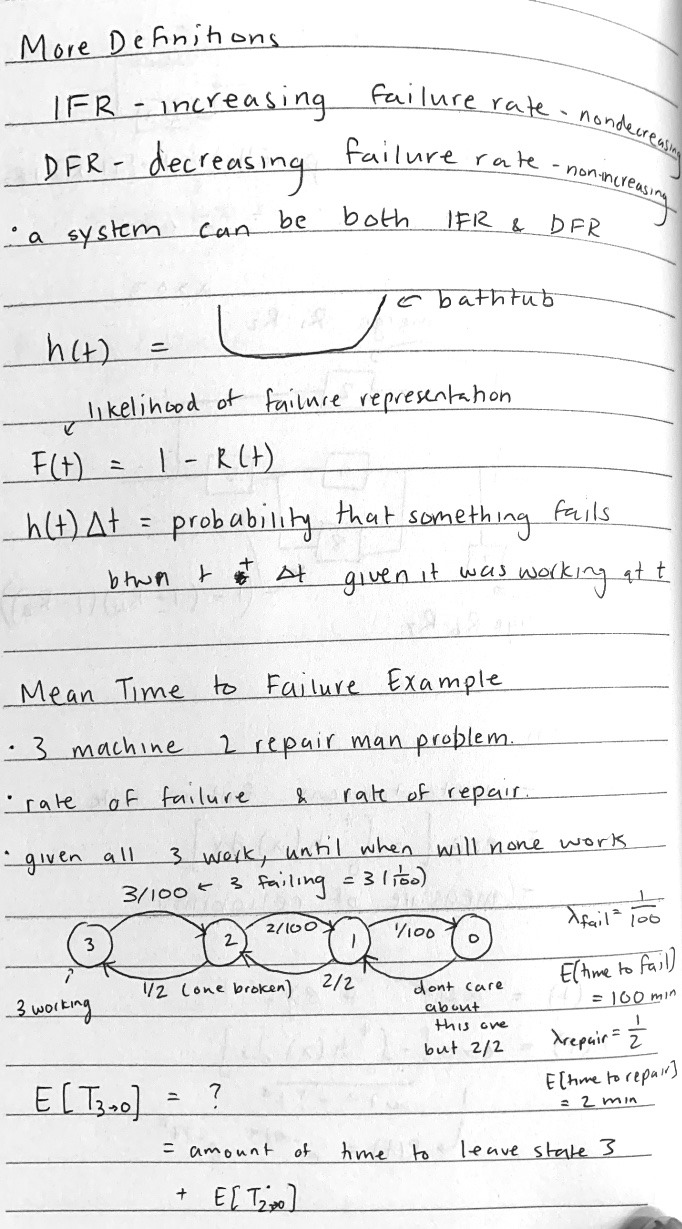 More Definitions
IFR - increasing failure rate - nondecreasing
DFR - decreasing failure rate - non-increasing
• a system can be both IFR & DFR
h(t) = ← bathtub
likelihood of failure representation
F(t) = 1 - R(t)
h(t) Δt = probability that something fails
btwn t + Δt given it was working at t
Mean Time to Failure Example
• 3 machine 2 repair man problem.
• rate of failure & rate of repair.
• given all 3 work, until when will none work
3/100 ← 3 failing = 3 (1/100)
λfail = 1/100
3 2 2/100 1 1/100 0
E(time to fail)
= 100 min
3 working
1/2 (one broken) 2/2
dont care
about
this one
but 2/2
λrepair = 1/2
E[time to repair]
= 2 min
E[T3→0] = ?
= amount of time to leave state 3
+ E[T2→0]